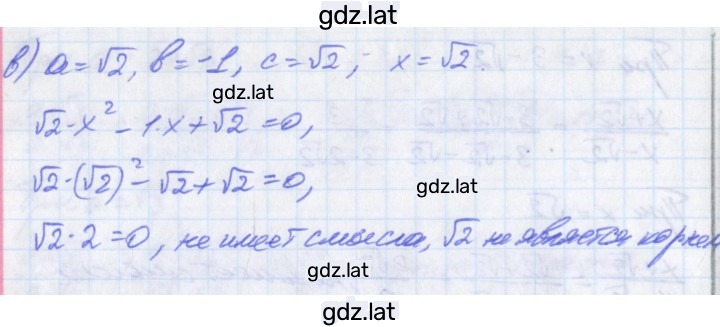 gdz.lat
в) a = √2, в = -1, c = √2, x = √2.
gdz.lat
√2·x² - 1·x + √2 = 0,
√2·(√2)² - √2 + √2 = 0,
gdz.lat
√2·2 = 0, не имеет смысла, √2 не является корнем
gdz.lat
gdz.lat